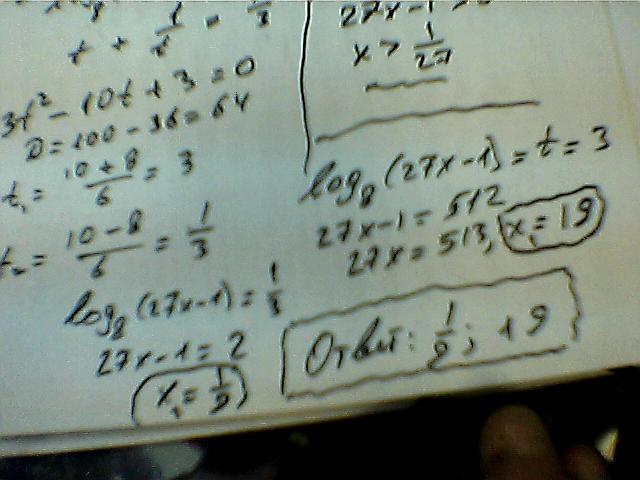 t + 1/t =
3t² - 10t + 3 = 0
D = 100 - 36 = 64
t₁ = (10 + 8)/6 = 3
t₂ = (10 - 8)/6 = 1/3
log₈(27x - 1) = 1/3
27x - 1 = 2
x₁ = 1/9
27x - 1 >
x > 1/27
log₈(27x - 1) = t = 3
27x - 1 = 512
27x = 513, x₁ = 19
Ответ: 1/9; 19